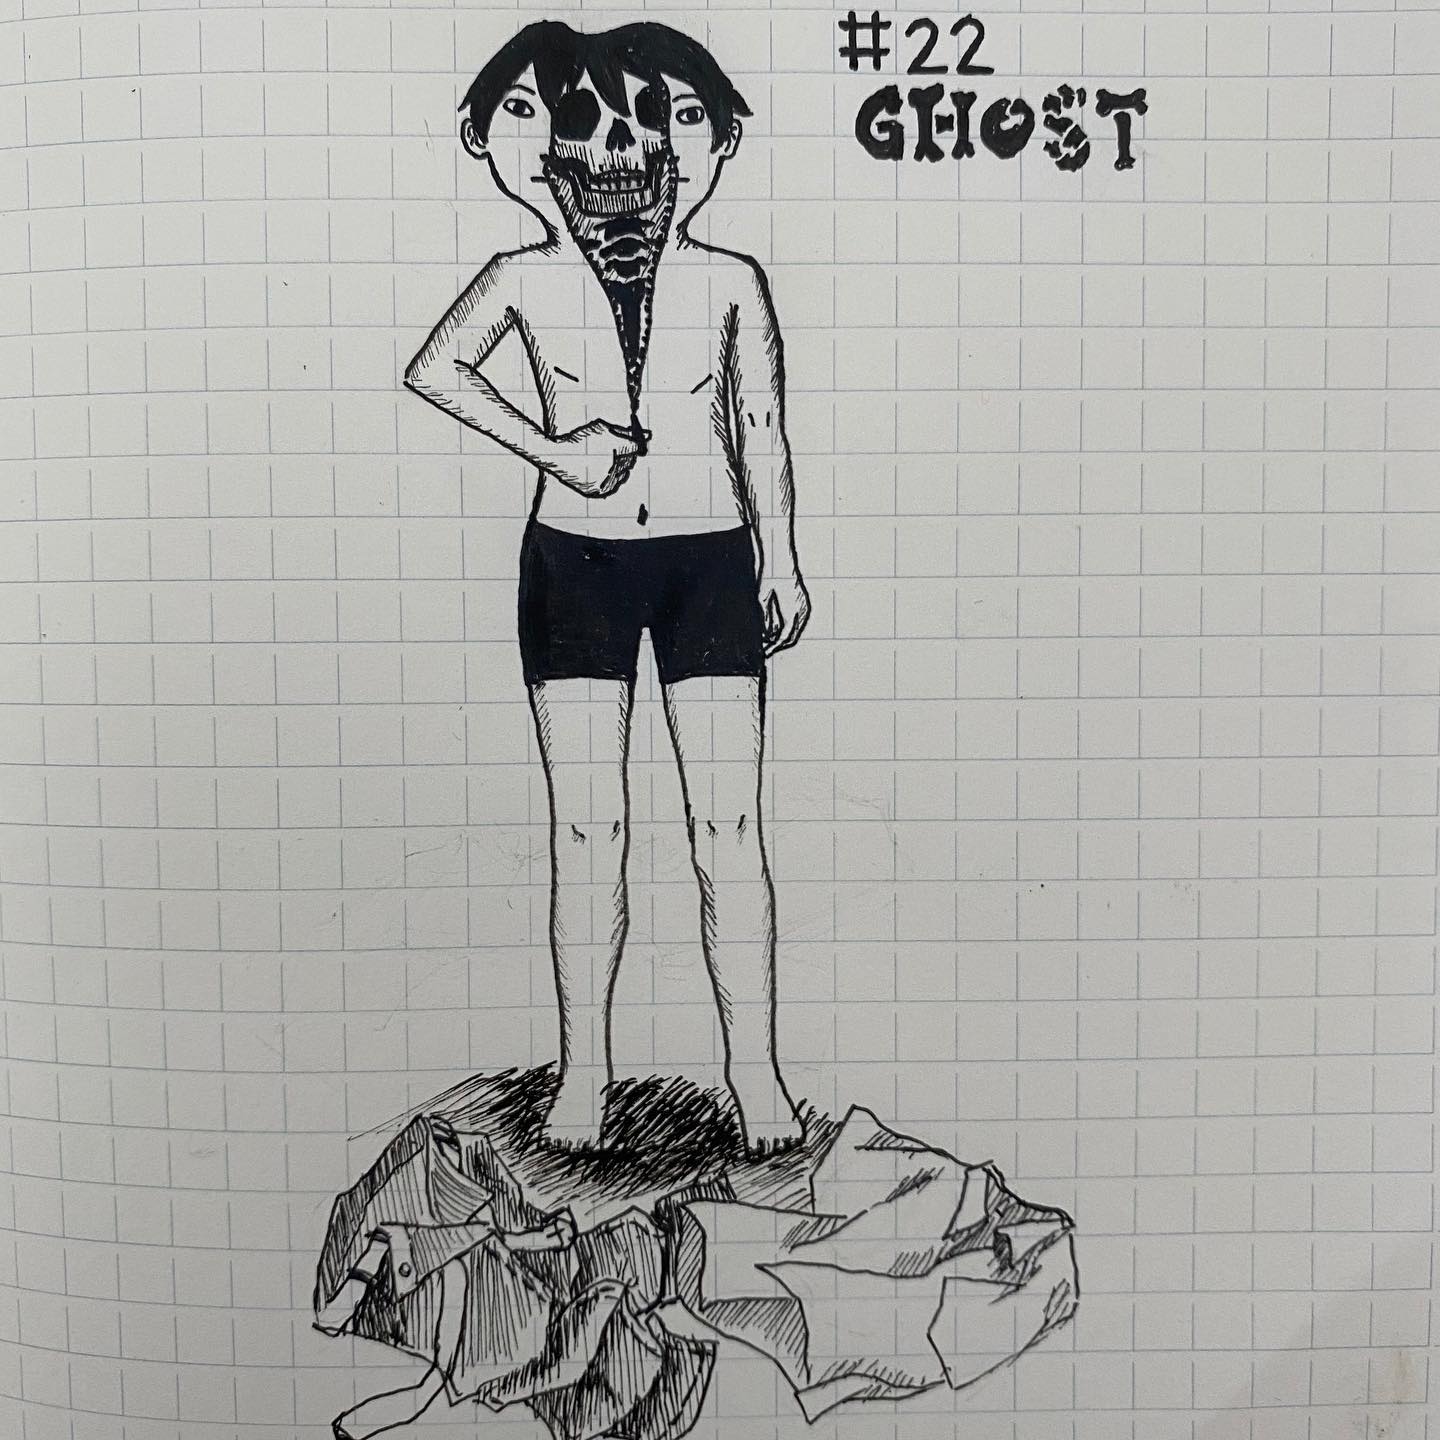 #22
GHOST